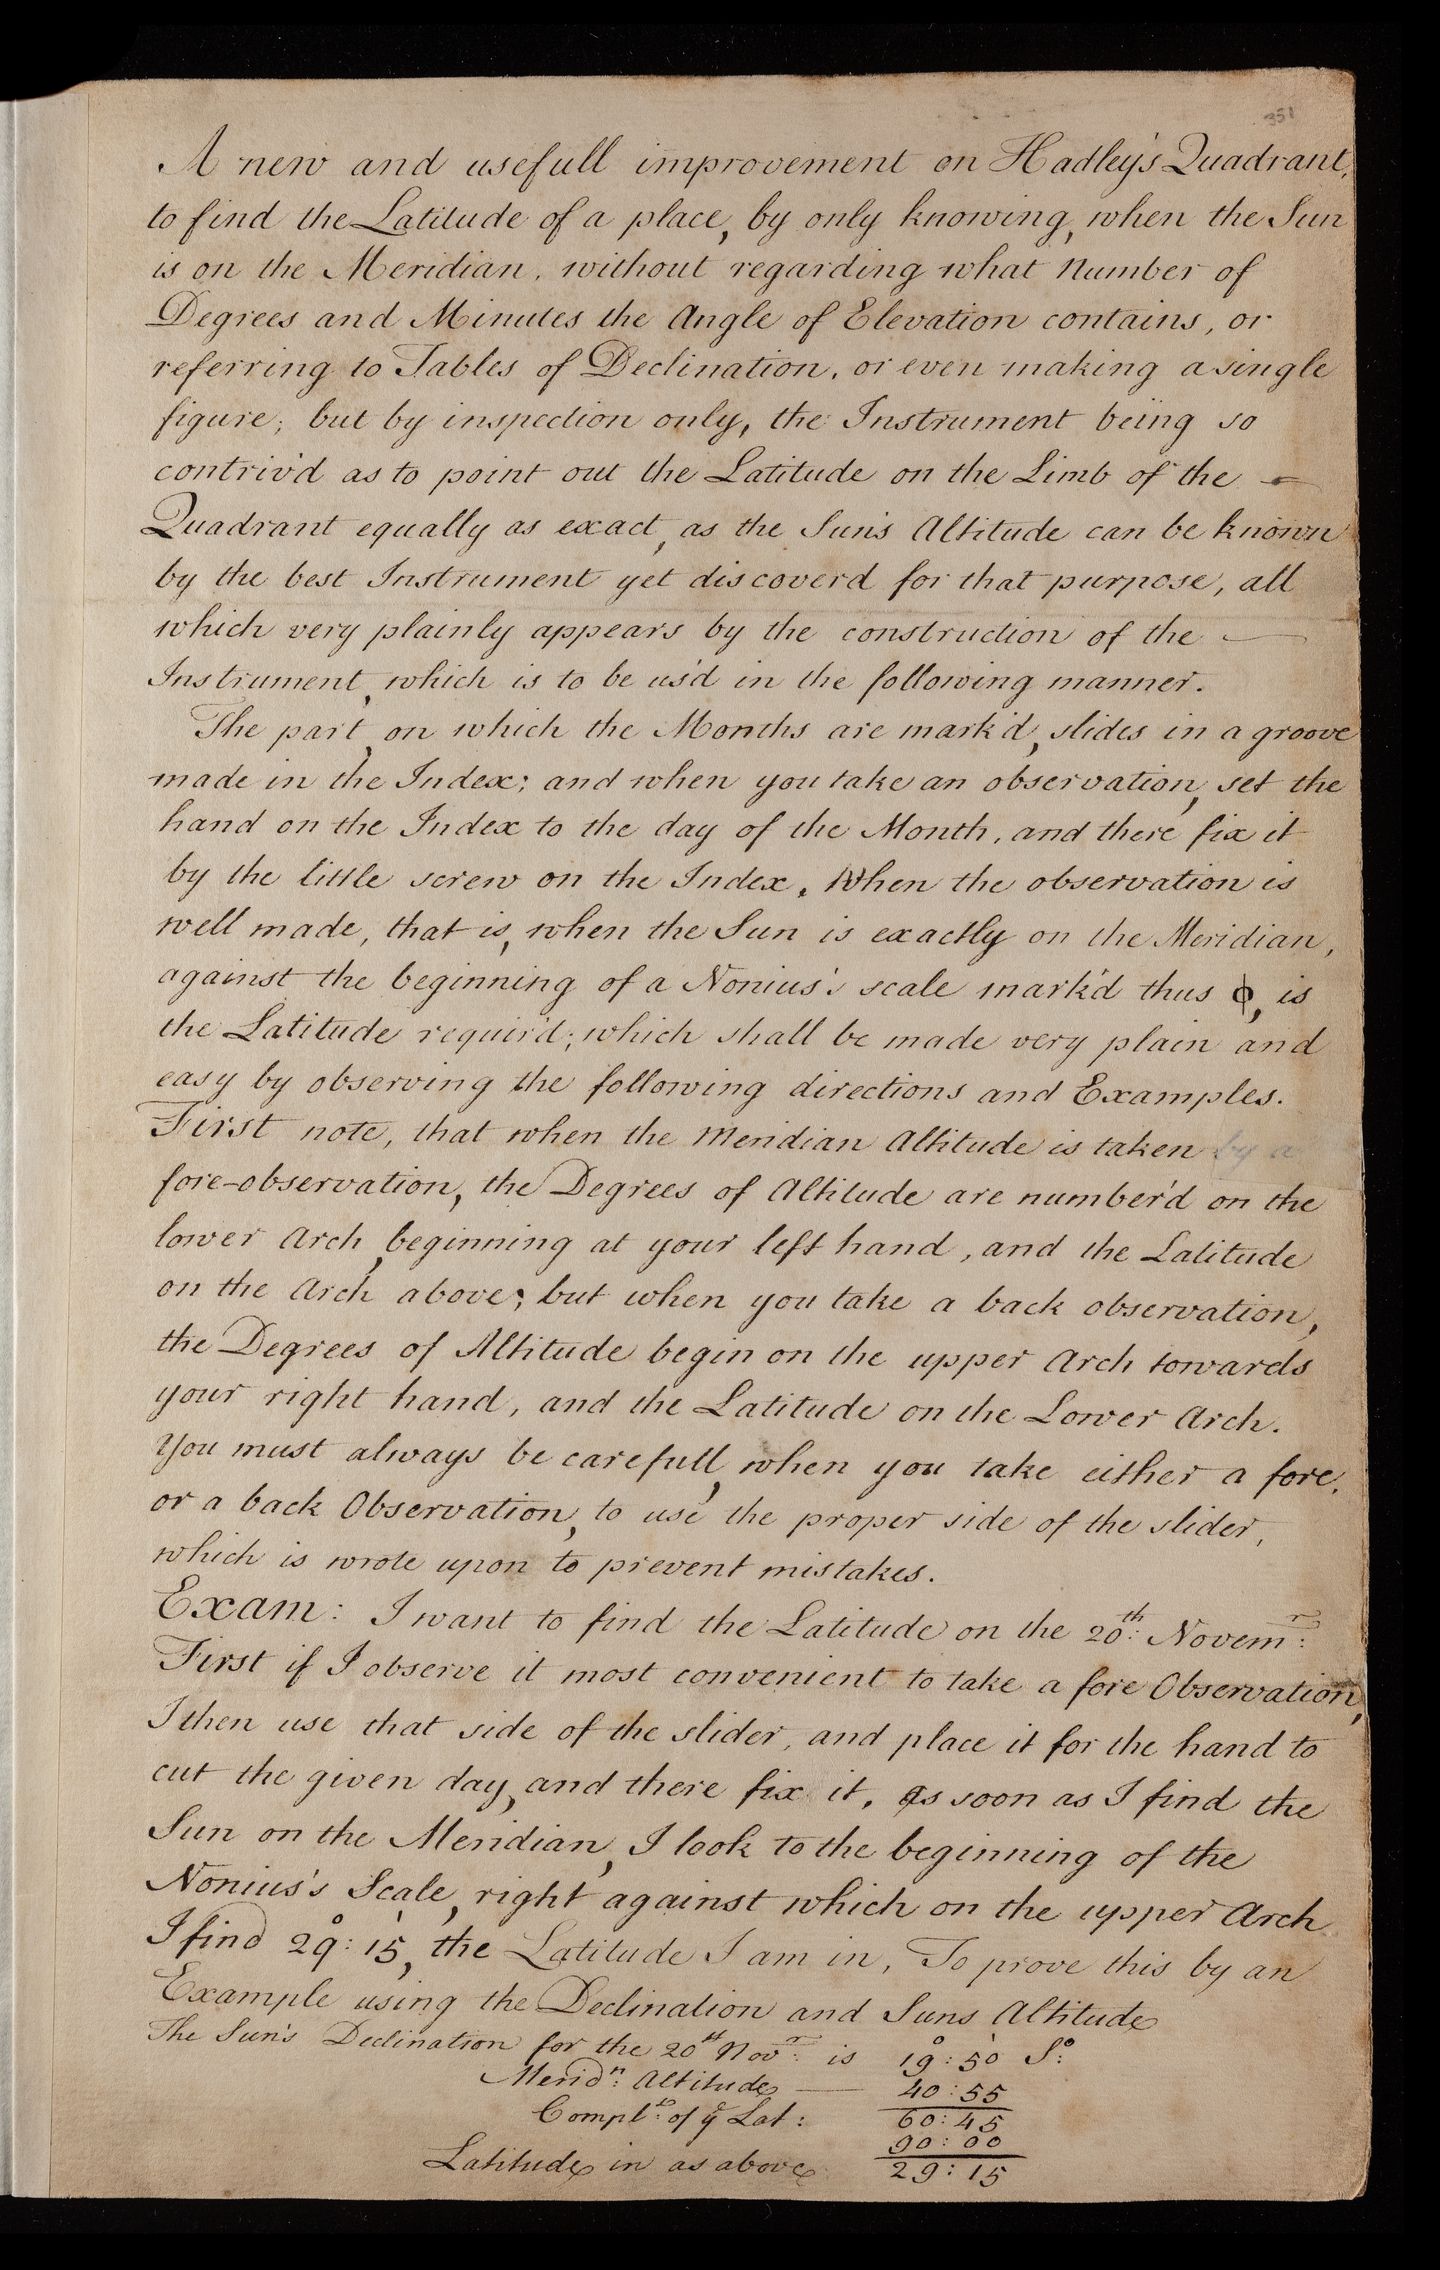 351
A new and usefull improvement on Hadley's Quadrant,
to find the Latitude of a place, by only knowing, when the Sun
is on the Meridian, without regarding what Number of
Degrees and Minutes the Angle of Elevation contains, or
referring to Tables of Declination, or even making a single
figure; but by inspection only, the Instrument being so
contriv'd as to point out the Latitude on the Limb of the —
Quadrant equally as exact, as the Sun's Altitude can be known
by the best Instrument yet discoverd for that purpose, all
which very plainly appears by the construction of the —
Instrument, which is to be us'd in the following manner.
The part, on which the Months are mark'd, slides in a groove
made in the Index; and when you take an observation, set the
hand on the Index to the day of the Month, and there fix it
by the little screw on the Index. When the observation is
well made, that is, when the Sun is exactly on the Meridian,
against the beginning of a Nonius's scale mark'd thus ϕ, is
the Latitude requir'd; which shall be made very plain and
easy by observing the following directions and Examples.
First note, that when the Meridian Altitude is taken by a
fore-observation, the Degrees of Altitude are number'd on the
lower Arch, beginning at your left hand, and the Latitude
on the Arch above; but when you take a back observation,
the Degrees of Altitude begin on the upper Arch towards
your right hand, and the Latitude on the Lower Arch.
You must always be carefull, when you take either a fore,
or a back Observation, to use the proper side of the slider,
which is wrote upon to prevent mistakes.
Exam: I want to find the Latitude on the 20th: Novemr:
First if I observe it most convenient to take a fore Observation,
I then use that side of the slider, and place it for the hand to
cut the given day, and there fix it, as soon as I find the
Sun on the Meridian, I look to the beginning of the
Nonius's Scale, right against which on the upper Arch
I find 29°: 15', the Latitude I am in, To prove this by an
Example using the Declination and Suns Altitude
The Sun's Declination for the 20th Novr: is 19°: 50' So:
Meridn: Altitude — 40:55
Complt: of ye Lat: 60:45
90:00
Latitude in as above 29:15